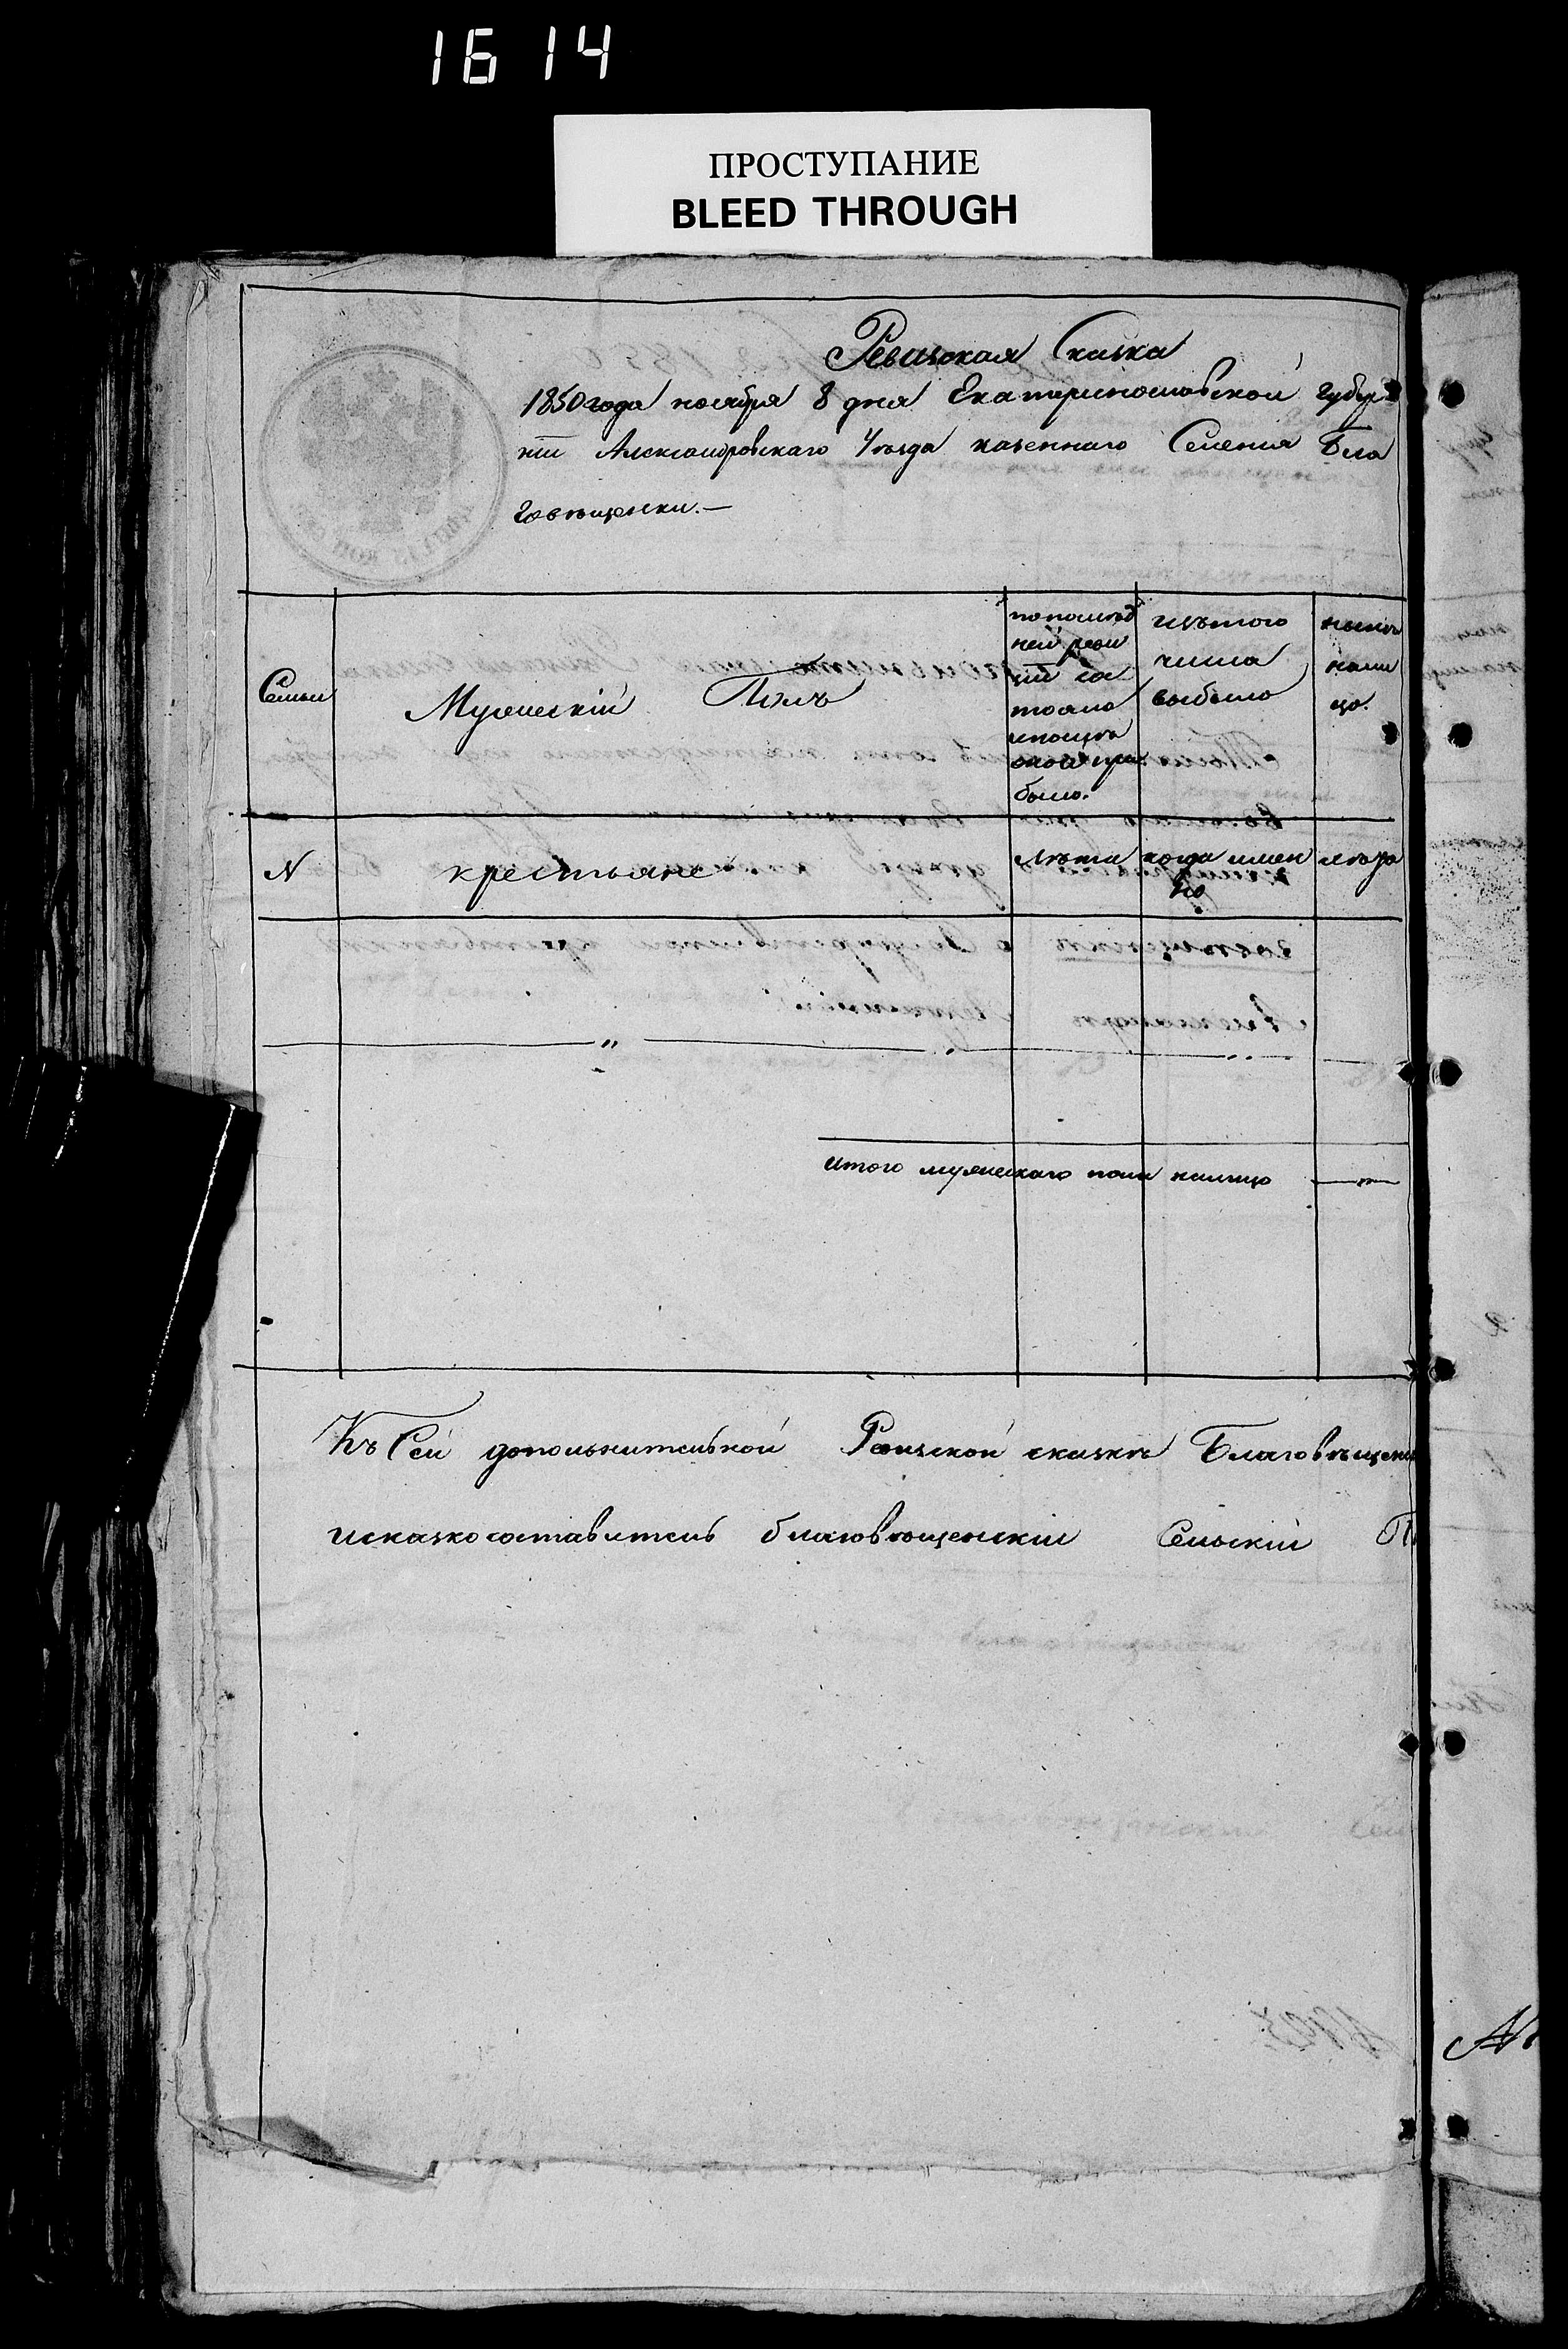 1614
ПРОСТУПАНИЕ
BLEED THROUGH
Ревизская Сказка
1850 года ноября 8 дня Екатеринославской губер
нии Александровскаго Уѣзда казеннаго Селения Бла
говѣщенки.—
Семьи
Мужескій Полъ
по послѣд
ней реви
зіи со
тояло
и послѣ
оной при
было.
изътого
числа
выбыло
нынѣ
нали
цо.
N
крестьяне
лѣта
когда имен
но
лѣта
итого мужескаго пола налицо
Къ Сей дополнительной Ревизской сказкѣ Благовѣщенс
и сказкосоставитель благовѣщенскій Сельскій